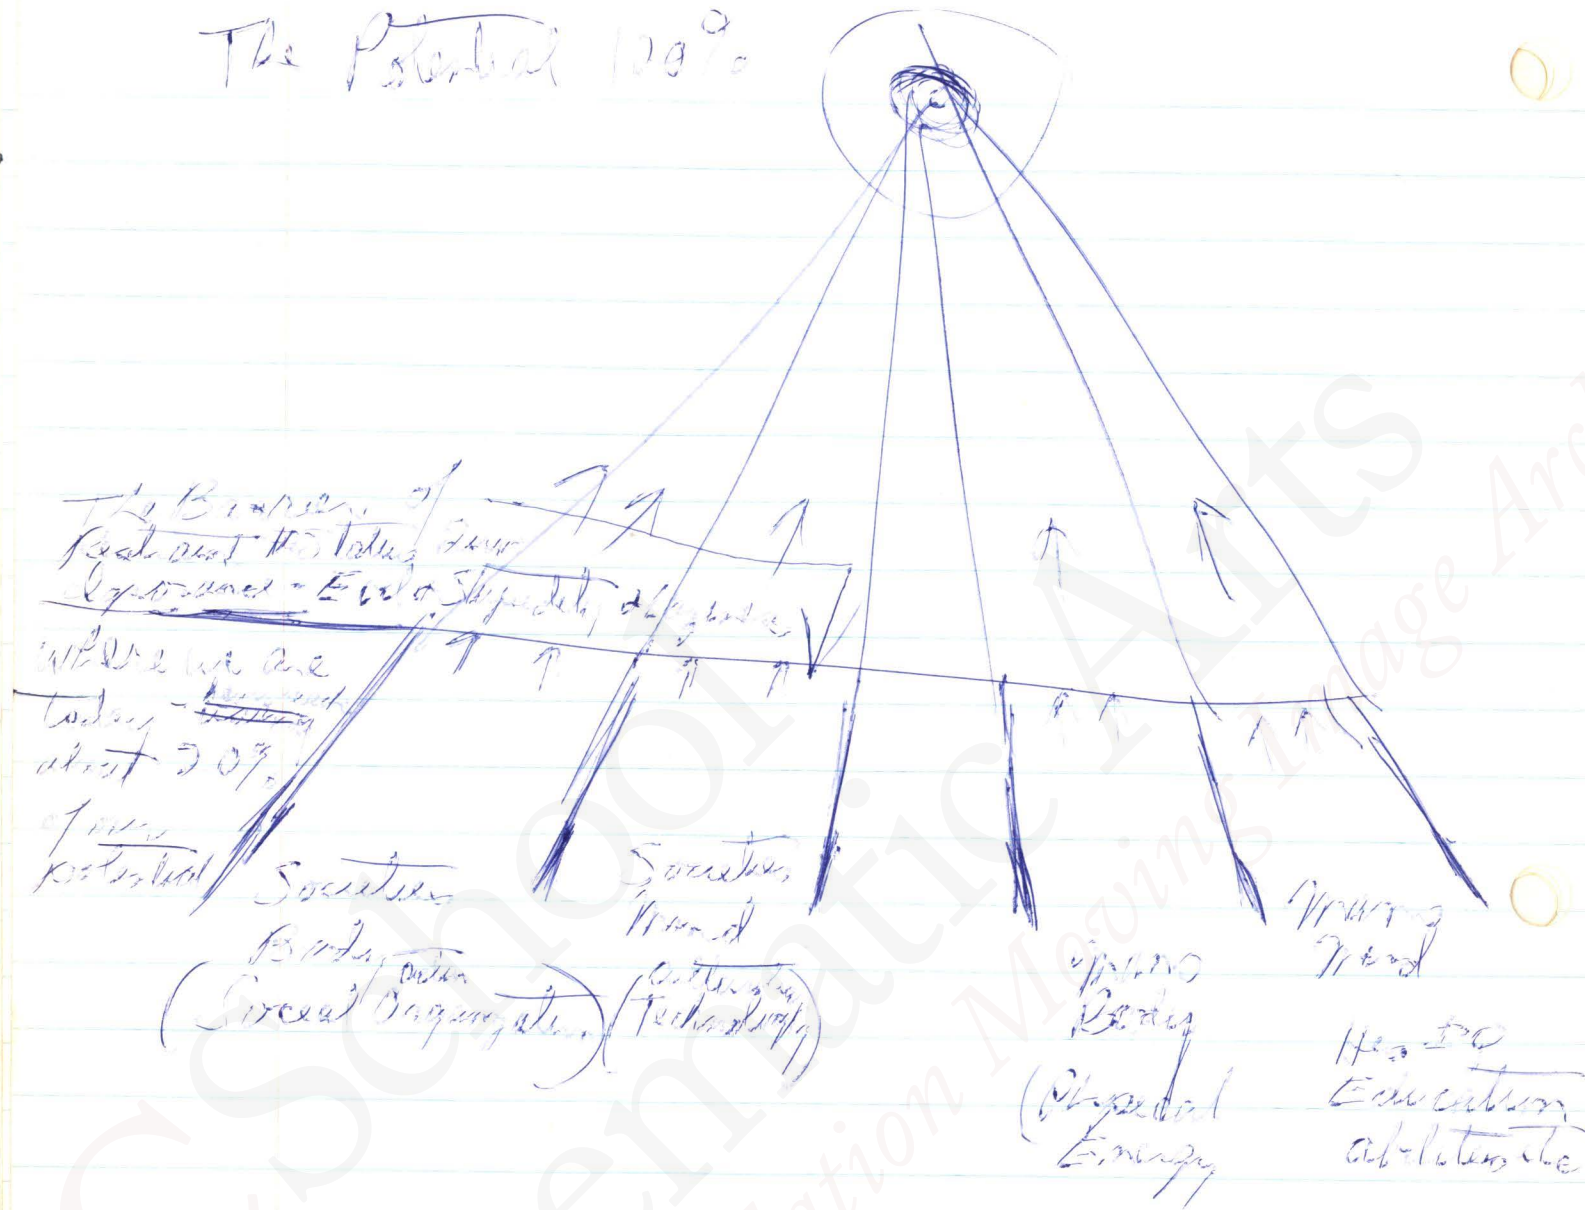 The Potential 100%
The Barrier of
Restraint
Ignorance - Evil + Stupidity
where we are
today -
about 20%
of our
potential
Societies
Body
action
(Social Organization)
Societies
Mind
(Culture
Technology)
Mans
Body
(Physical
Energy
Mans
Mind
His IQ
Education
abilities etc
School
ematic Arts
Moving Image Arc